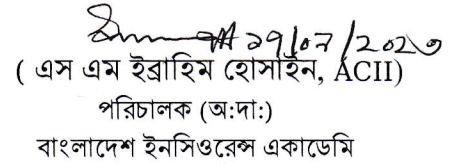 ১৭/০৭/২০২৩
( এস এম ইব্রাহিম হোসাইন, ACII)
পরিচালক (অ:দা:)
বাংলাদেশ ইনসিওরেন্স একাডেমি